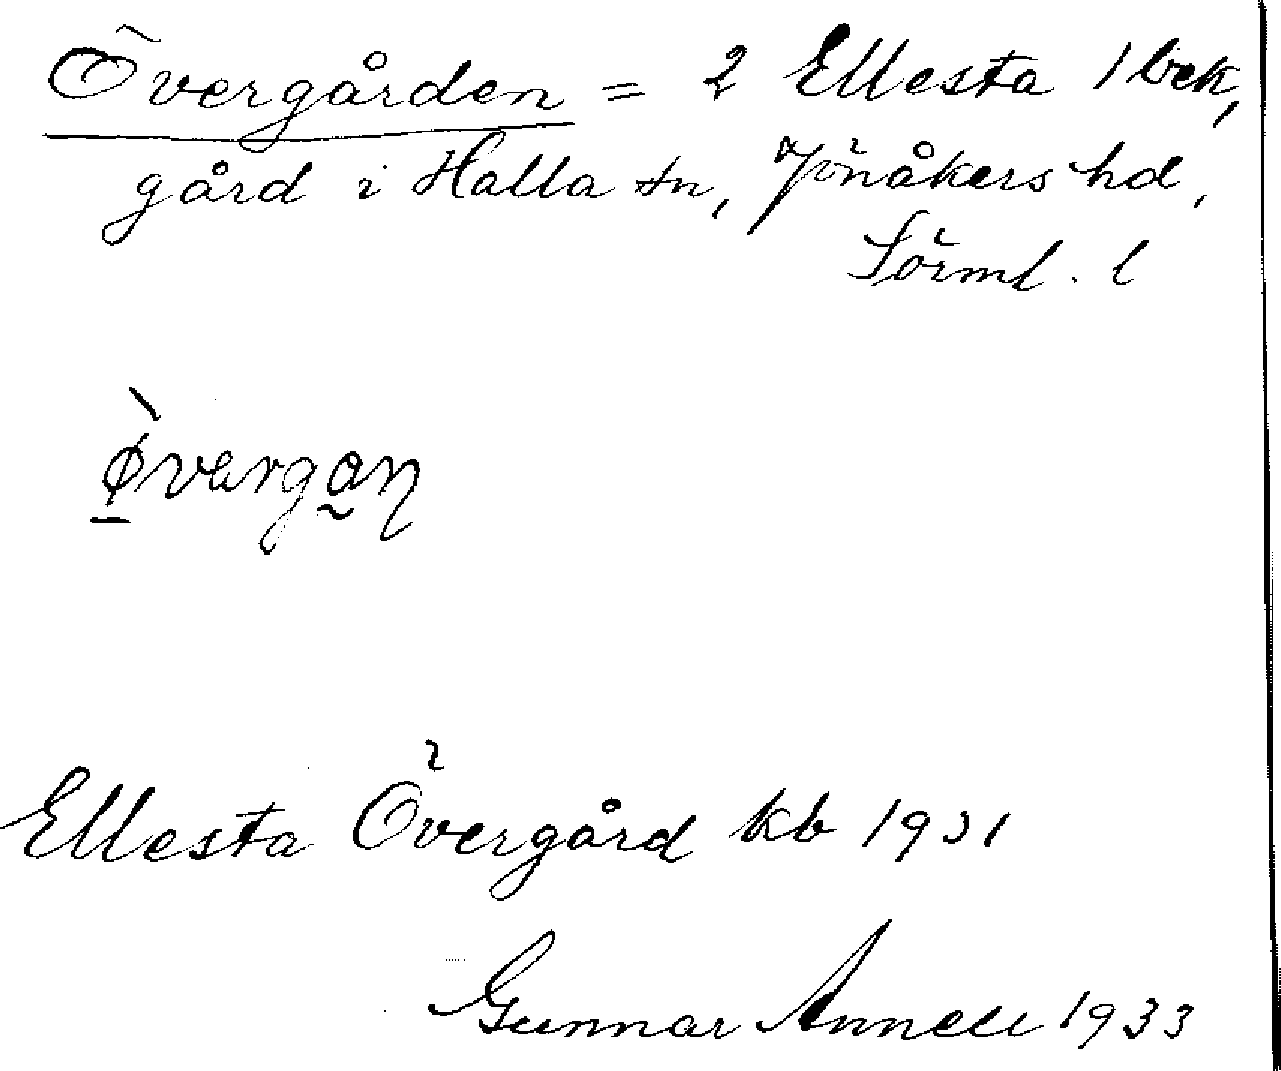 Övergården = 2 Ellesta 1 bek,
gård i Halla sn, Jönåkers hd,
Sörml. l
Ellesta Övergård kb 1931
Gunnar Annell 1933